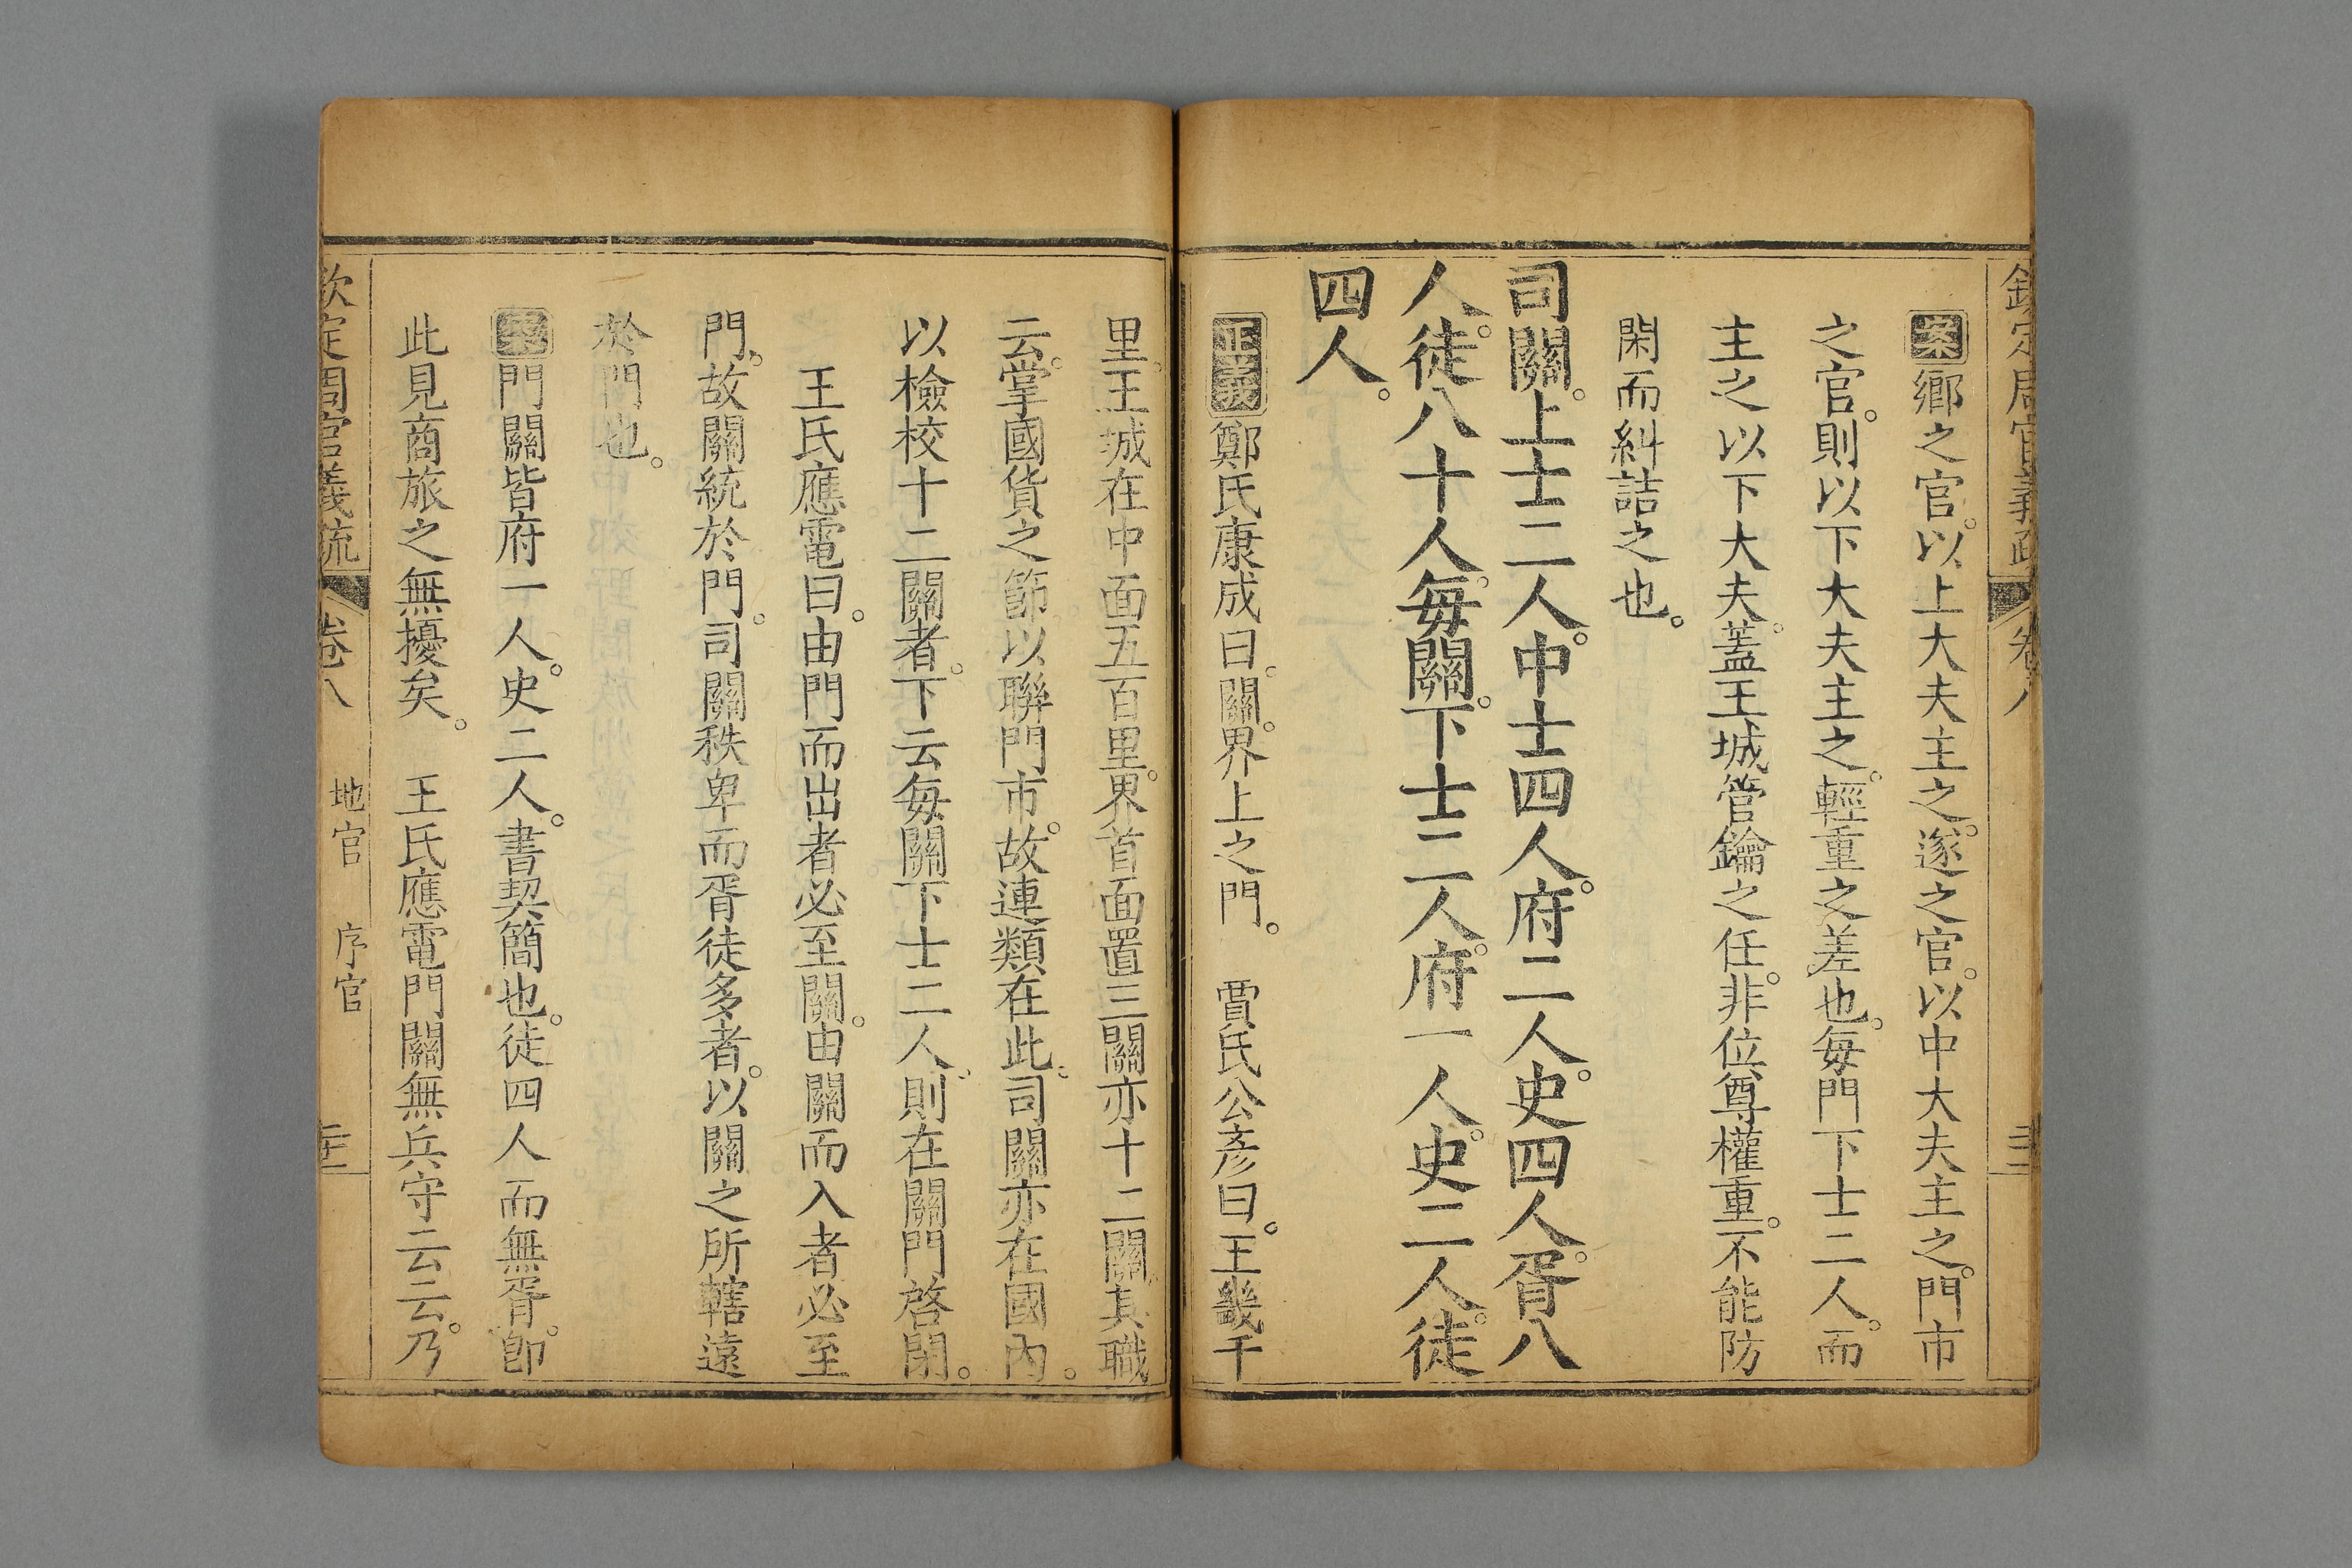 欽定周官義疏 卷八
案鄉之官。以上大夫主之。遂之官。以中大夫主之。門市
之官。則以下大夫主之。輕重之差也。每門下士二人。而
主之以下大夫。蓋王城管鑰之任。非位尊權重。不能防
閑而糾詰之也。
司關。上士二人。中士四人。府二人。史四人。胥八
人。徒八十人。每關。下士二人。府一人。史二人。徒
四人。
正義鄭氏康成曰。關。界上之門。 賈氏公彥曰。王畿千
里。王城在中。面五百里。界首面置三關。亦十二關。其職
云。掌國貨之節。以聯門市。故連類在此。司關亦在國內。
以檢校十二關者。下云每關下士二人。則在關門啓閉。
王氏應電曰。由門而出者必至關。由關而入者必至
門。故關統於門。司關秩卑而胥徒多者。以關之所轄遠
於門也。
案門關皆府一人。史二人。書契簡也。徒四人而無胥。卽
此見商旅之無擾矣。 王氏應電門關無兵守云云。乃
欽定周官義疏 卷八 地官 序官